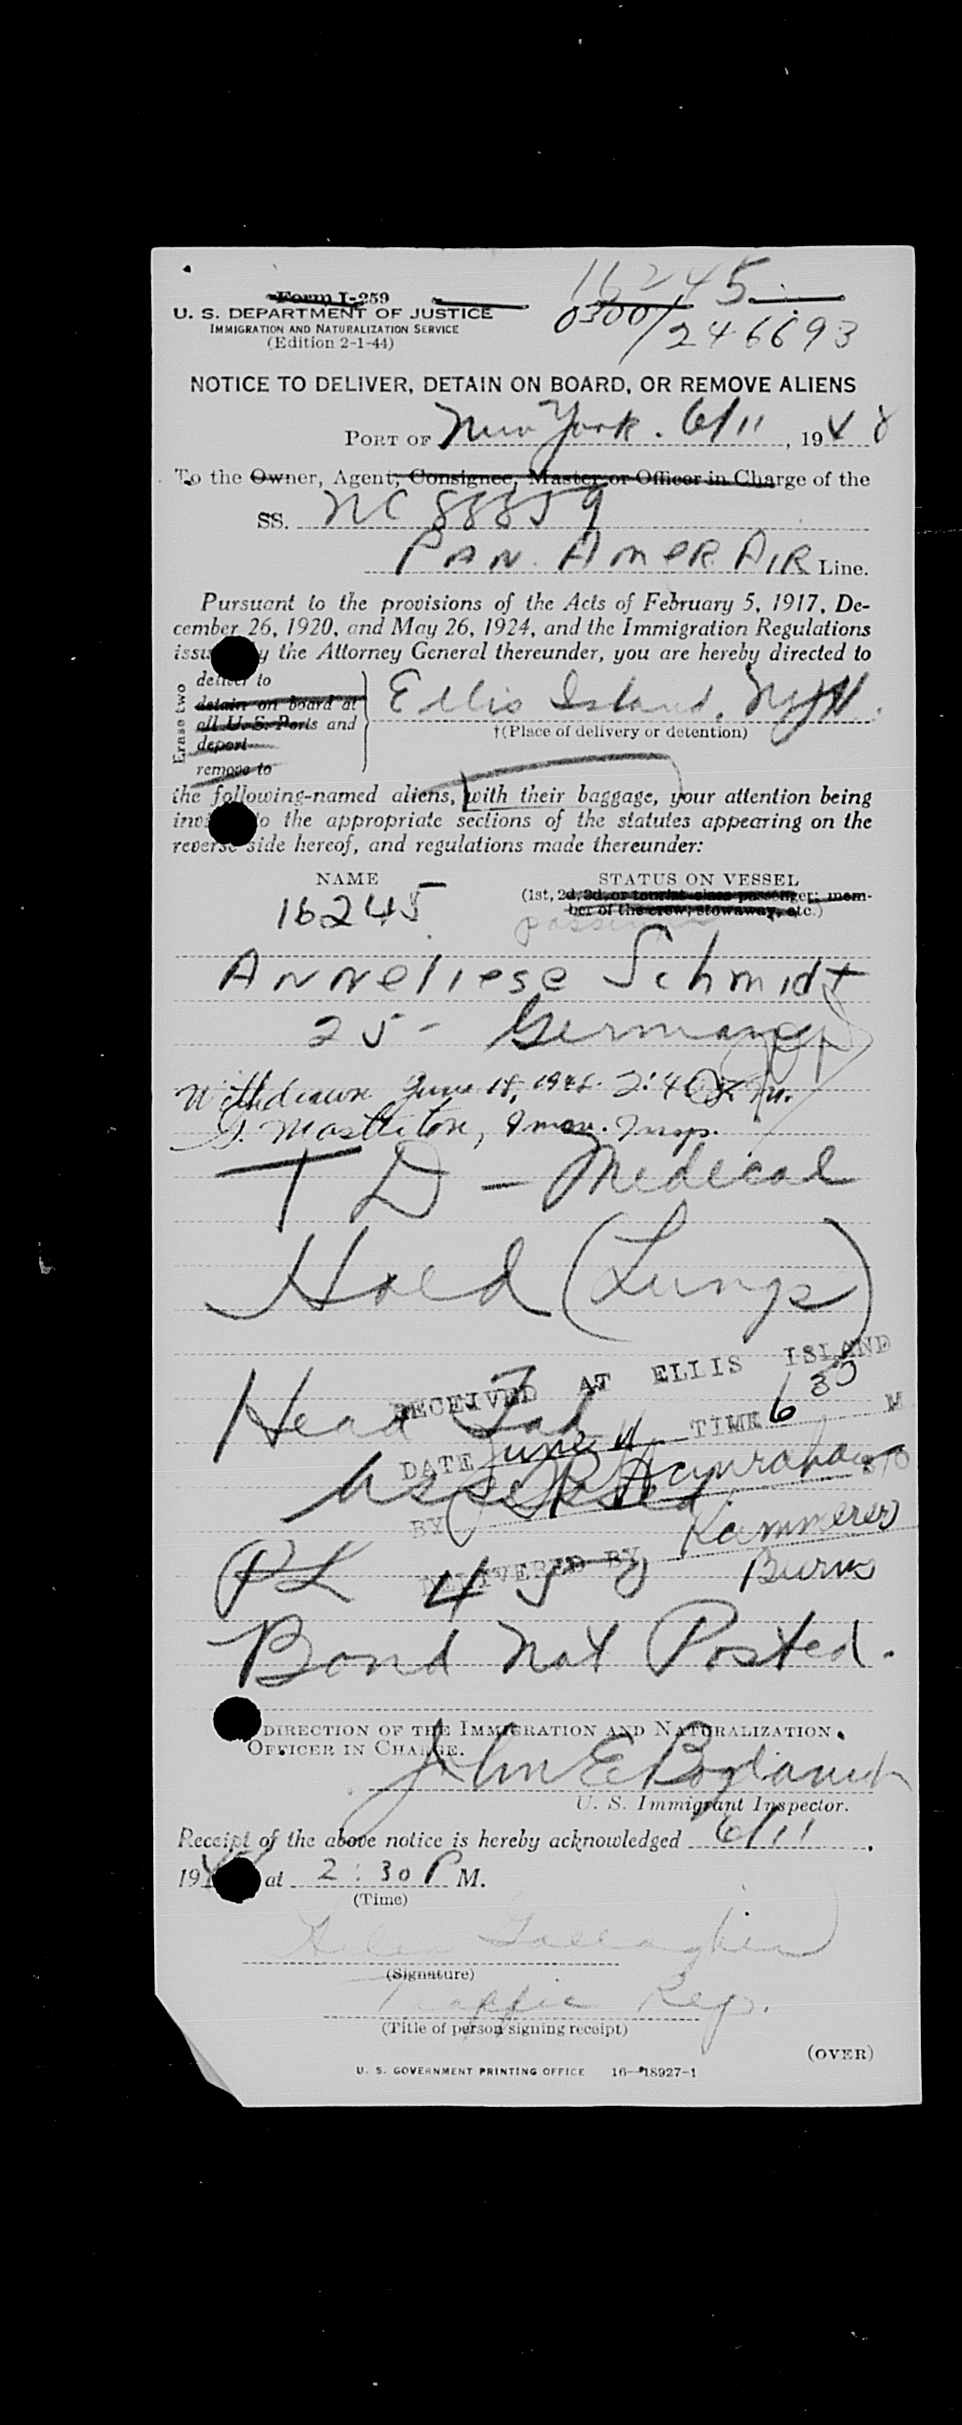 16245
Form I-259
0300/246693
U. S. DEPARTMENT OF JUSTICE
IMMIGRATION AND NATURALIZATION SERVICE
(Edition 2-1-44)
NOTICE TO DELIVER, DETAIN ON BOARD, OR REMOVE ALIENS
PORT OF New York. 6/11, 1948
To the Owner, Agent, Consignee, Master or Officer in Charge of the
SS. NC 88859
PAN. AMER AIR Line.
Pursuant to the provisions of the Acts of February 5, 1917, De-
cember 26, 1920, and May 26, 1924, and the Immigration Regulations
issued by the Attorney General thereunder, you are hereby directed to
Erase two
deliver to
detain on board at
all U. S. Ports and
deport
remove to
Ellis Island, NYH.
†(Place of delivery or detention)
the following-named aliens, with their baggage, your attention being
invited to the appropriate sections of the statutes appearing on the
reverse side hereof, and regulations made thereunder:
NAME STATUS ON VESSEL
(1st, 2d, 3d, or tourist class passenger; mem-
ber of the crew; stowaway, etc.)
16245 passenger
Anneliese Schmidt
25 - Germany
Withdrawn June 18, 1948. 2:40
Immi. Insp.
TD - Medical
Hold (Lungs)
RECEIVED AT ELLIS ISLAND
Head Tax
DATE June 11 TIME 6 30 M
Assessed
BY
DELIVERED BY Kammerer
Burns
PL
Bond not Posted.
DIRECTION OF THE IMMIGRATION AND NATURALIZATION
OFFICER IN CHARGE.
John E
U. S. Immigrant Inspector.
Receipt of the above notice is hereby acknowledged 6/11,
19 at 2:30 P M.
(Time)
Helen Gallagher
(Signature)
Traffic Rep.
(Title of person signing receipt)
(OVER)
U. S. GOVERNMENT PRINTING OFFICE 16-18927-1